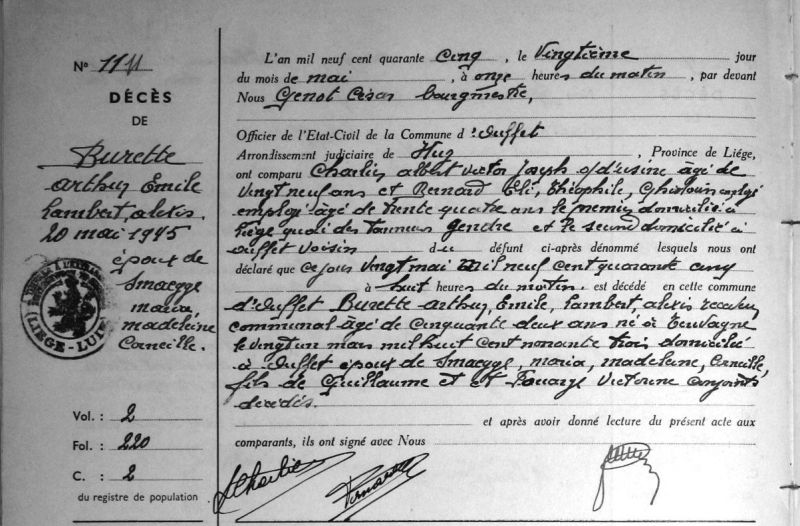 N° 11
DÉCÈS
DE
Burette
Arthur Emile
Lambert, Alexis.
20 mai 1945
époux de
Smaegge
Maria,
Madeleine
Corneille.
LIÉGE-LUIK
Vol. : 2
Fol. : 220
C. : 2
du registre de population
L'an mil neuf cent quarante cinq, le Vingtième jour
du mois de mai, à onze heures du matin, par devant
Nous Genot César bourgmestre,
Officier de l'Etat-Civil de la Commune d'Ouffet
Arrondissement judiciaire de Huy, Province de Liége,
ont comparu Charlier Albert Victor Joseph d'usine âgé de
vingt neuf ans et Bernard Eli, Théophile, Ghislain
employé âgé de trente quatre ans le premier domicilié à
Liége quai des Tanneurs gendre et le second domicilié à
Ouffet voisin du défunt ci-après dénommé lesquels nous ont
déclaré que ce jour vingt mai mil neuf cent quarante cinq
à huit heures du matin est décédé en cette commune
d'Ouffet Burette Arthur, Emile, Lambert, Alexis receveur
communal âgé de cinquante deux ans né à Terwagne
le vingt un mars mil huit cent nonante trois domicilié
à Ouffet époux de Smaegge, Maria, Madeleine, Corneille,
fils de Guillaume et Victorine conjoints
décédés.
et après avoir donné lecture du présent acte aux
comparants, ils ont signé avec Nous
Charlier
Bernard